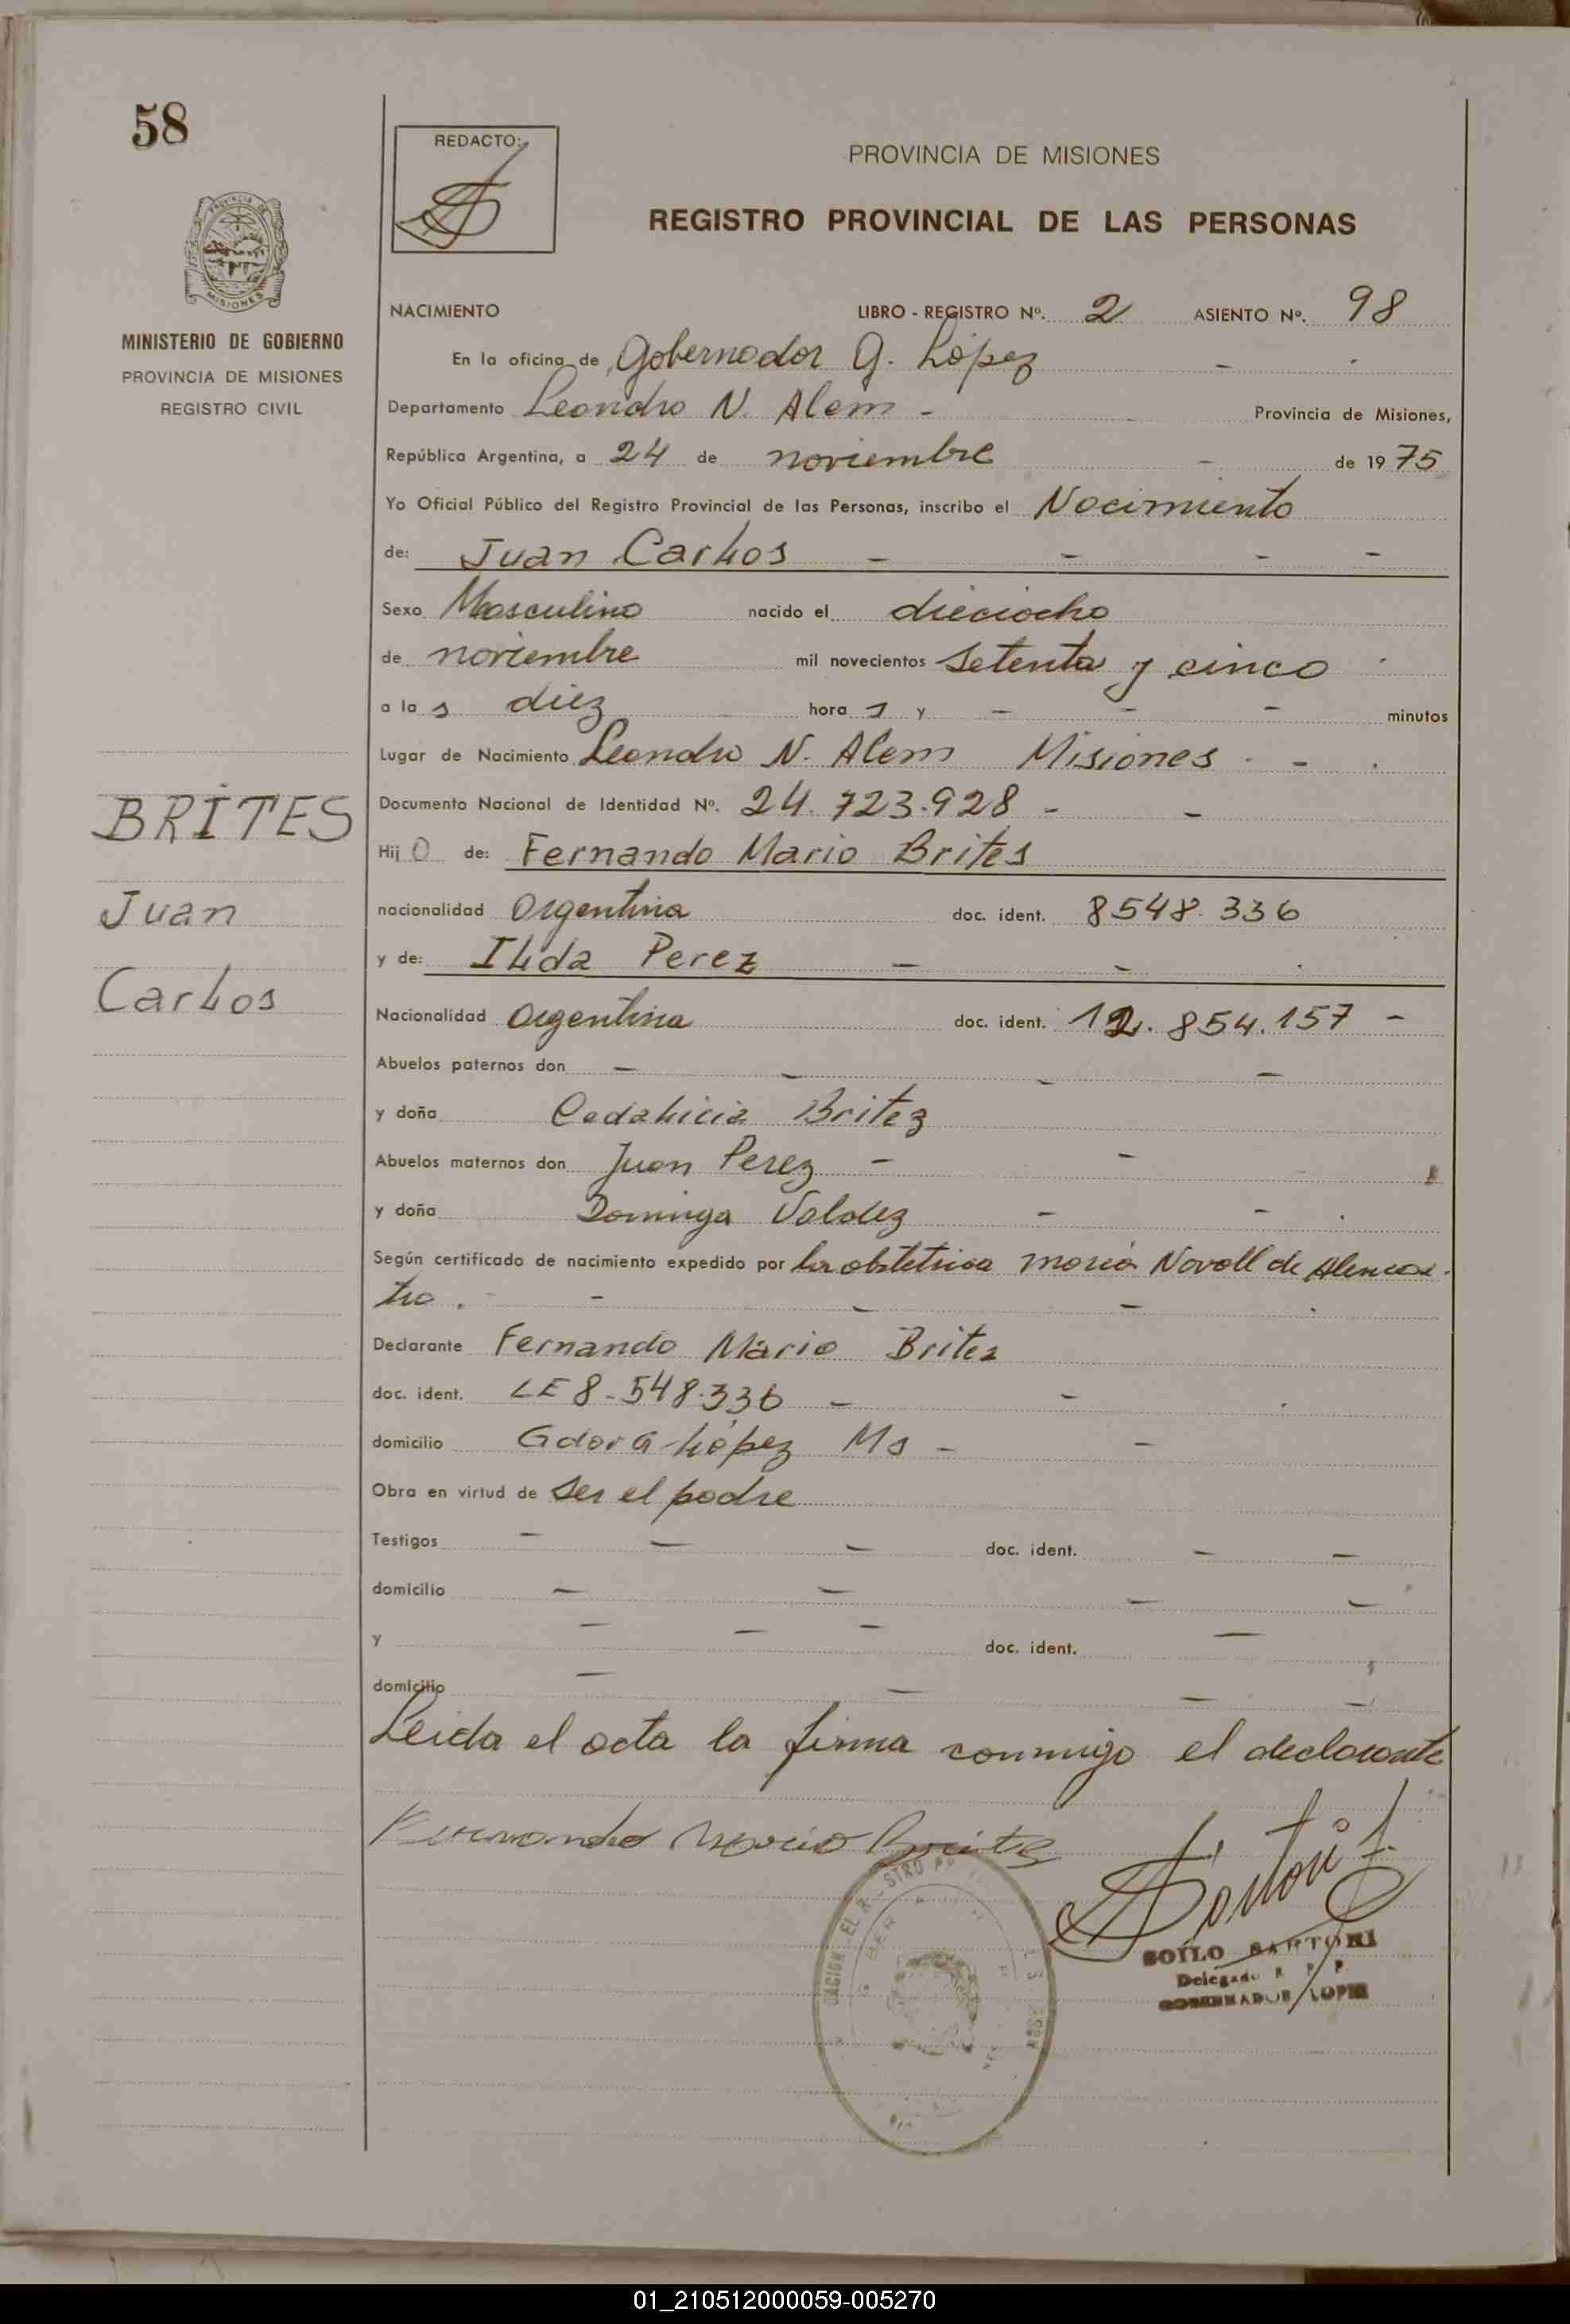 58
REDACTO:
PROVINCIA DE MISIONES
REGISTRO PROVINCIAL DE LAS PERSONAS
MISIONES
MINISTERIO DE GOBIERNO
PROVINCIA DE MISIONES
REGISTRO CIVIL
NACIMIENTO LIBRO - REGISTRO Nº. 2 ASIENTO Nº. 98
En la oficina de Gobernador G. López - 
Departamento Leandro N. Alem - Provincia de Misiones,
República Argentina, a 24 de noviembre - de 1975
Yo Oficial Público del Registro Provincial de las Personas, inscribo el Nacimiento
de: Juan Carlos - - - -
Sexo Masculino nacido el dieciocho
de noviembre mil novecientos setenta y cinco
a las diez horas y - - - minutos
Lugar de Nacimiento Leandro N. Alem Misiones - - .
Documento Nacional de Identidad Nº. 24.723.928 - -
BRITES
Hijo de: Fernando Mario Brites
Juan
nacionalidad Argentina doc. ident. 8548.336
y de: Ilda Perez - - .
Carlos
Nacionalidad Argentina doc. ident. 12.854.157 -
Abuelos paternos don - - - -
y doña Britez
Abuelos maternos don Juan Perez - -
y doña Dominga Valdez - - .
Según certificado de nacimiento expedido por la obstetrica maria Novoll de Alencas-
tro . - - - .
Declarante Fernando Mario Brites
doc. ident. LE 8-548.336 - -
domicilio Gdor G López Ms - -
Obra en virtud de ser el padre
Testigos - - - doc. ident. - -
domicilio - - - -
y - - - doc. ident. -
domicilio - - - -
Leida el acta la firma conmigo el declarante
Fernando Mario Brites
Sartori
SOILO SARTORI
Delegado R P P
GOBERNADOR LOPEZ
01_210512000059-005270